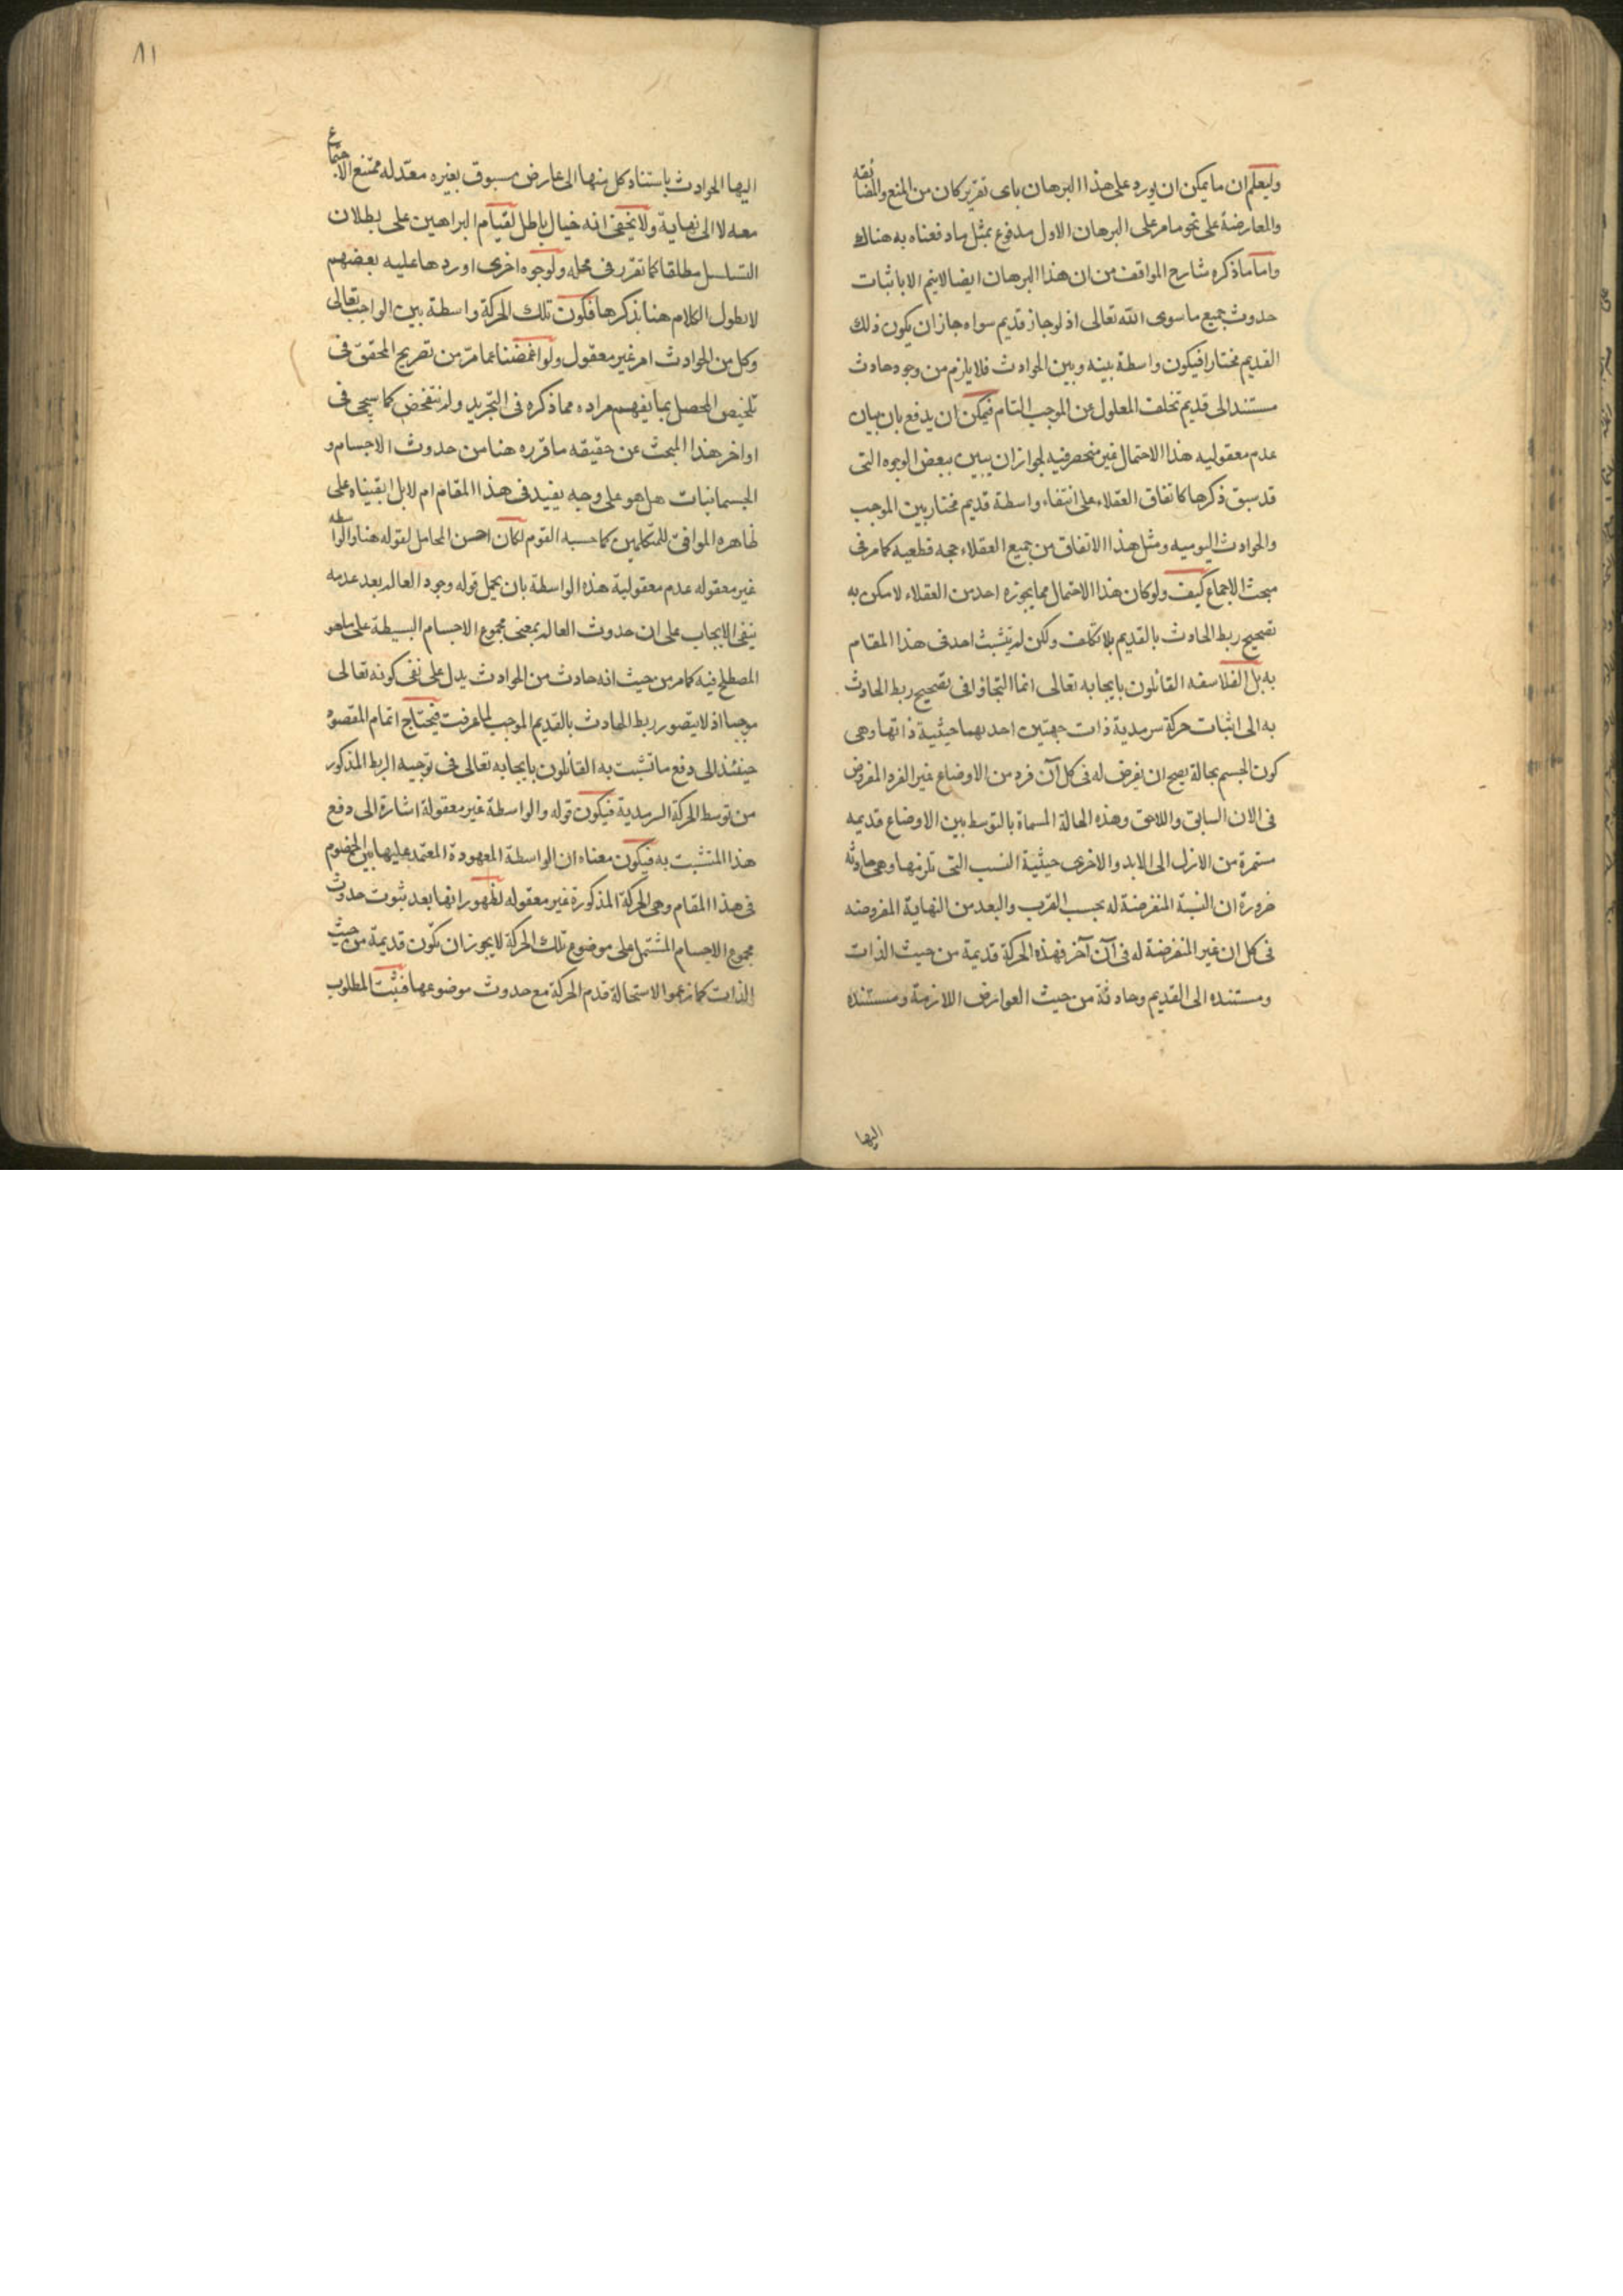 وليعلم ان ما يمكن ان يورد على هذا البرهان باى تقرير كان من المنع والمضايقه
والمعارضة على نحو ما مر على البرهان الاول مدفوع بمثل ما دفعناه به هناك
واما ما ذكره شارح المواقف من ان هذا البرهان ايضا لا يتم الا باثبات
حدوث جميع ما سوى الله تعالى اذ لو جاز قديم سواه جاز ان يكون ذلك
القديم مختارا فيكون واسطة بينه وبين الحوادث فلا يلزم من وجود حادث
مستند الى قديم تخلف المعلول عن الموجب التام فيمكن ان يدفع بان بيان
عدم معقوليه هذا الاحتمال غير منحصر فيه لجواز ان يبين ببعض الوجوه التى
قد سبق ذكرها كاتفاق العقلاء على انتفاء واسطة قديم مختار بين الموجب
والحوادث اليوميه ومثل هذا الاتفاق من جميع العقلاء حجه قطعيه كما مر فى
مبحث الاجماع كيف ولو كان هذا الاحتمال مما يجوزه احد من العقلاء لامكن به
تصحيح ربط الحادث بالقديم بلا تكلف ولكن لم يتشبث احد فى هذا المقام
به بل الفلاسفه القائلون بايجابه تعالى انما التجاؤا فى تصحيح ربط الحادث
به الى اثبات حركة سرمدية ذات جهتين احديهما حيثية ذاتها وهى
كون الجسم بحالة يصح ان يفرض له فى كل آن فرد من الاوضاع غير الفرد المفروض
فى الان السابق واللاحق وهذه الحالة المسماة بالتوسط بين الاوضاع قديمه
مستمرة من الازل الى الابد والاخرى حيثية النسب التى تلزمها وهى حادثه
ضرورة ان النسبة المنفرضة له بحسب القرب والبعد من النهاية المفروضه
فى كل ان غير المنفرضة له فى آن آخر فهذه الحركة قديمة من حيث الذات
ومستنده الى القديم وحادثة من حيث العوارض اللازمة ومستنده
اليها
٨١
اليها الحوادث باستناد كل منها الى عارض مسبوق بغيره معد له ممتنع الاجتماع
معه لا الى نهاية ولا يخفى انه خيال باطل لقيام البراهين على بطلان
التسلسل مطلقا كما تقرر فى محله ولوجوه اخرى اوردها عليه بعضهم
لا نطول الكلام هنا بذكرها فكون تلك الحركة واسطة بين الواجب تعالى
وكل من الحوادث امر غير معقول ولو اغمضنا عما مر من تصريح المحقق فى
تلخيص المحصل بما يفهم مراده مما ذكره فى التجريد ولم نتفحص كما سيجى فى
اواخر هذا المبحث عن حقيقه ما قرره هنا من حدوث الاجسام و
الجسمانيات هل هو على وجه يفيد فى هذا المقام ام لا بل ابقيناه على
ظاهره الموافق للمتكلمين كما حسبه القوم لكان احسن المحامل لقوله هنا والواسطه
غير معقوله عدم معقولية هذه الواسطة بان يحمل قوله وجود العالم بعد عدمه
ينفى الايجاب على ان حدوث العالم بمعنى مجموع الاجسام البسيطة على ما هو
المصطلح فيه كما مر من حيث انه حادث من الحوادث يدل على نفى كونه تعالى
موجبا اذ لا يتصور ربط الحادث بالقديم الموجب لما عرفت فيحتاج اتمام المقصود
حينئذ الى دفع ما تشبث به القائلون بايجابه تعالى فى توجيه الربط المذكور
من توسط الحركة السرمدية فيكون قوله والواسطة غير معقولة اشارة الى دفع
هذا المتشبث به فيكون معناه ان الواسطة المعهودة المعتمد عليها بين الخصوم
فى هذا المقام وهى الحركة المذكورة غير معقوله لظهور انها بعد ثبوت حدوث
مجموع الاجسام المشتمل على موضوع تلك الحركة لا يجوز ان تكون قديمة من حيث
الذات كما زعموا لاستحالة قدم الحركة مع حدوث موضوعها فثبت المطلوب